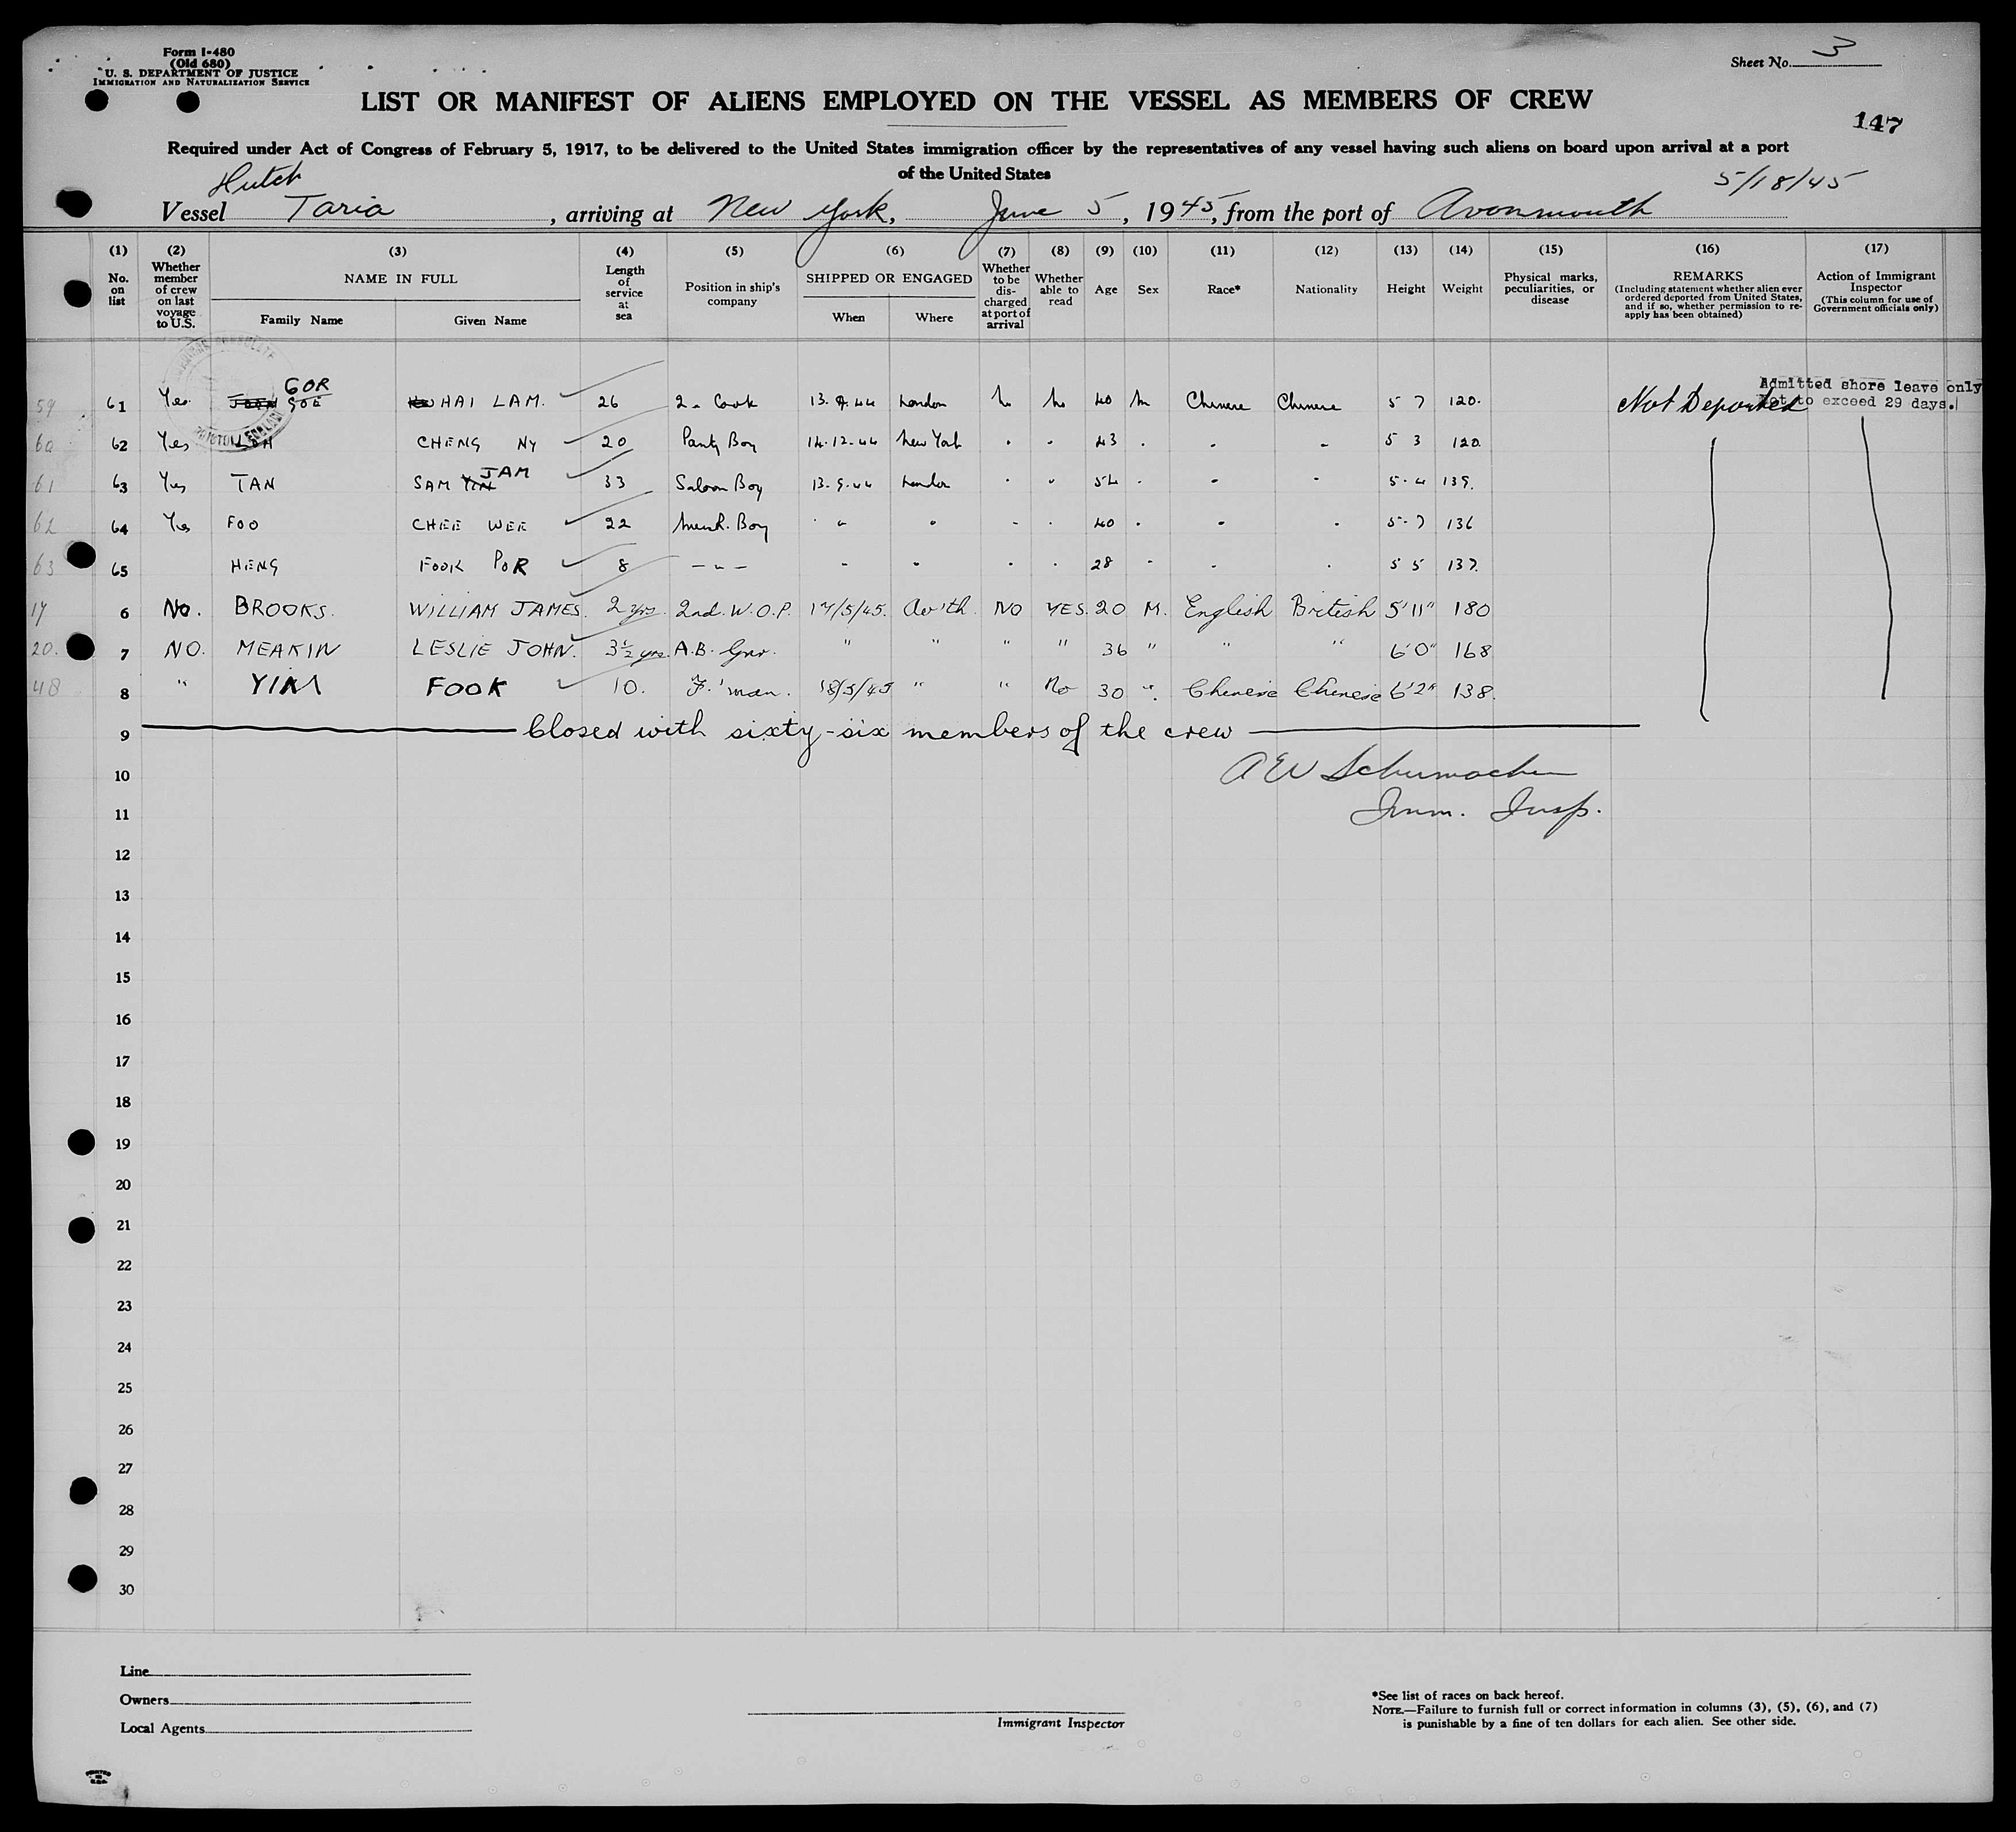 Form I-480
(Old 680)
U. S. DEPARTMENT OF JUSTICE
IMMIGRATION AND NATURALIZATION SERVICE
Sheet No. 3
LIST OR MANIFEST OF ALIENS EMPLOYED ON THE VESSEL AS MEMBERS OF CREW
147
Required under Act of Congress of February 5, 1917, to be delivered to the United States immigration officer by the representatives of any vessel having such aliens on board upon arrival at a port
of the United States
5/18/45
Dutch
Vessel Taria, arriving at New York, June 5, 1945, from the port of Avonmouth
(1) (2) (3) (4) (5) (6) (7) (8) (9) (10) (11) (12) (13) (14) (15) (16) (17)
No. on list
Whether member of crew on last voyage to U.S.
NAME IN FULL
Family Name Given Name
Length of service at sea
Position in ship's company
SHIPPED OR ENGAGED
When Where
Whether to be discharged at port of arrival
Whether able to read
Age
Sex
Race*
Nationality
Height
Weight
Physical marks, peculiarities, or disease
REMARKS
(Including statement whether alien ever ordered deported from United States, and if so, whether permission to reapply has been obtained)
Action of Immigrant Inspector
(This column for use of Government officials only)
Admitted shore leave only
Not to exceed 29 days.
59 61 Yes GOR GOE HAI LAM. 26 2- Cook 13.9.44 London No No 40 M Chinese Chinese 5 7 120. Not Deported
60 62 Yes LOH CHENG NY 20 Pantry Boy 14.12.44 New York " " 43 " " " 5 3 120.
61 63 Yes TAN SAM YIN JAM 33 Saloon Boy 13.9.44 London " " 54 " " " 5-4 139.
62 64 Yes FOO CHEE WEE 22 Boy " " " " 40 " " " 5-7 136
63 65 HENG FOOK POR 8 - " - " " " " 28 " " " 5 5 137.
17 6 No. BROOKS. WILLIAM JAMES. 2 yrs. 2nd. W.O.P. 17/5/45. Av'th. NO YES. 20 M. English British 5'11" 180
20. 7 NO. MEAKIN LESLIE JOHN. 3½ yrs. A.B. Gnr. " " " " 36 " " " 6'0" 168
48 8 " YIM FOOK 10. F'man. 18/5/45 " " No 30 " Chinese Chinese 6'2" 138.
9 Closed with sixty-six members of the crew
10 A W Schumacher
11 Imm. Insp.
12
13
14
15
16
17
18
19
20
21
22
23
24
25
26
27
28
29
30
Line
Owners
Local Agents
Immigrant Inspector
*See list of races on back hereof.
NOTE.—Failure to furnish full or correct information in columns (3), (5), (6), and (7)
is punishable by a fine of ten dollars for each alien. See other side.